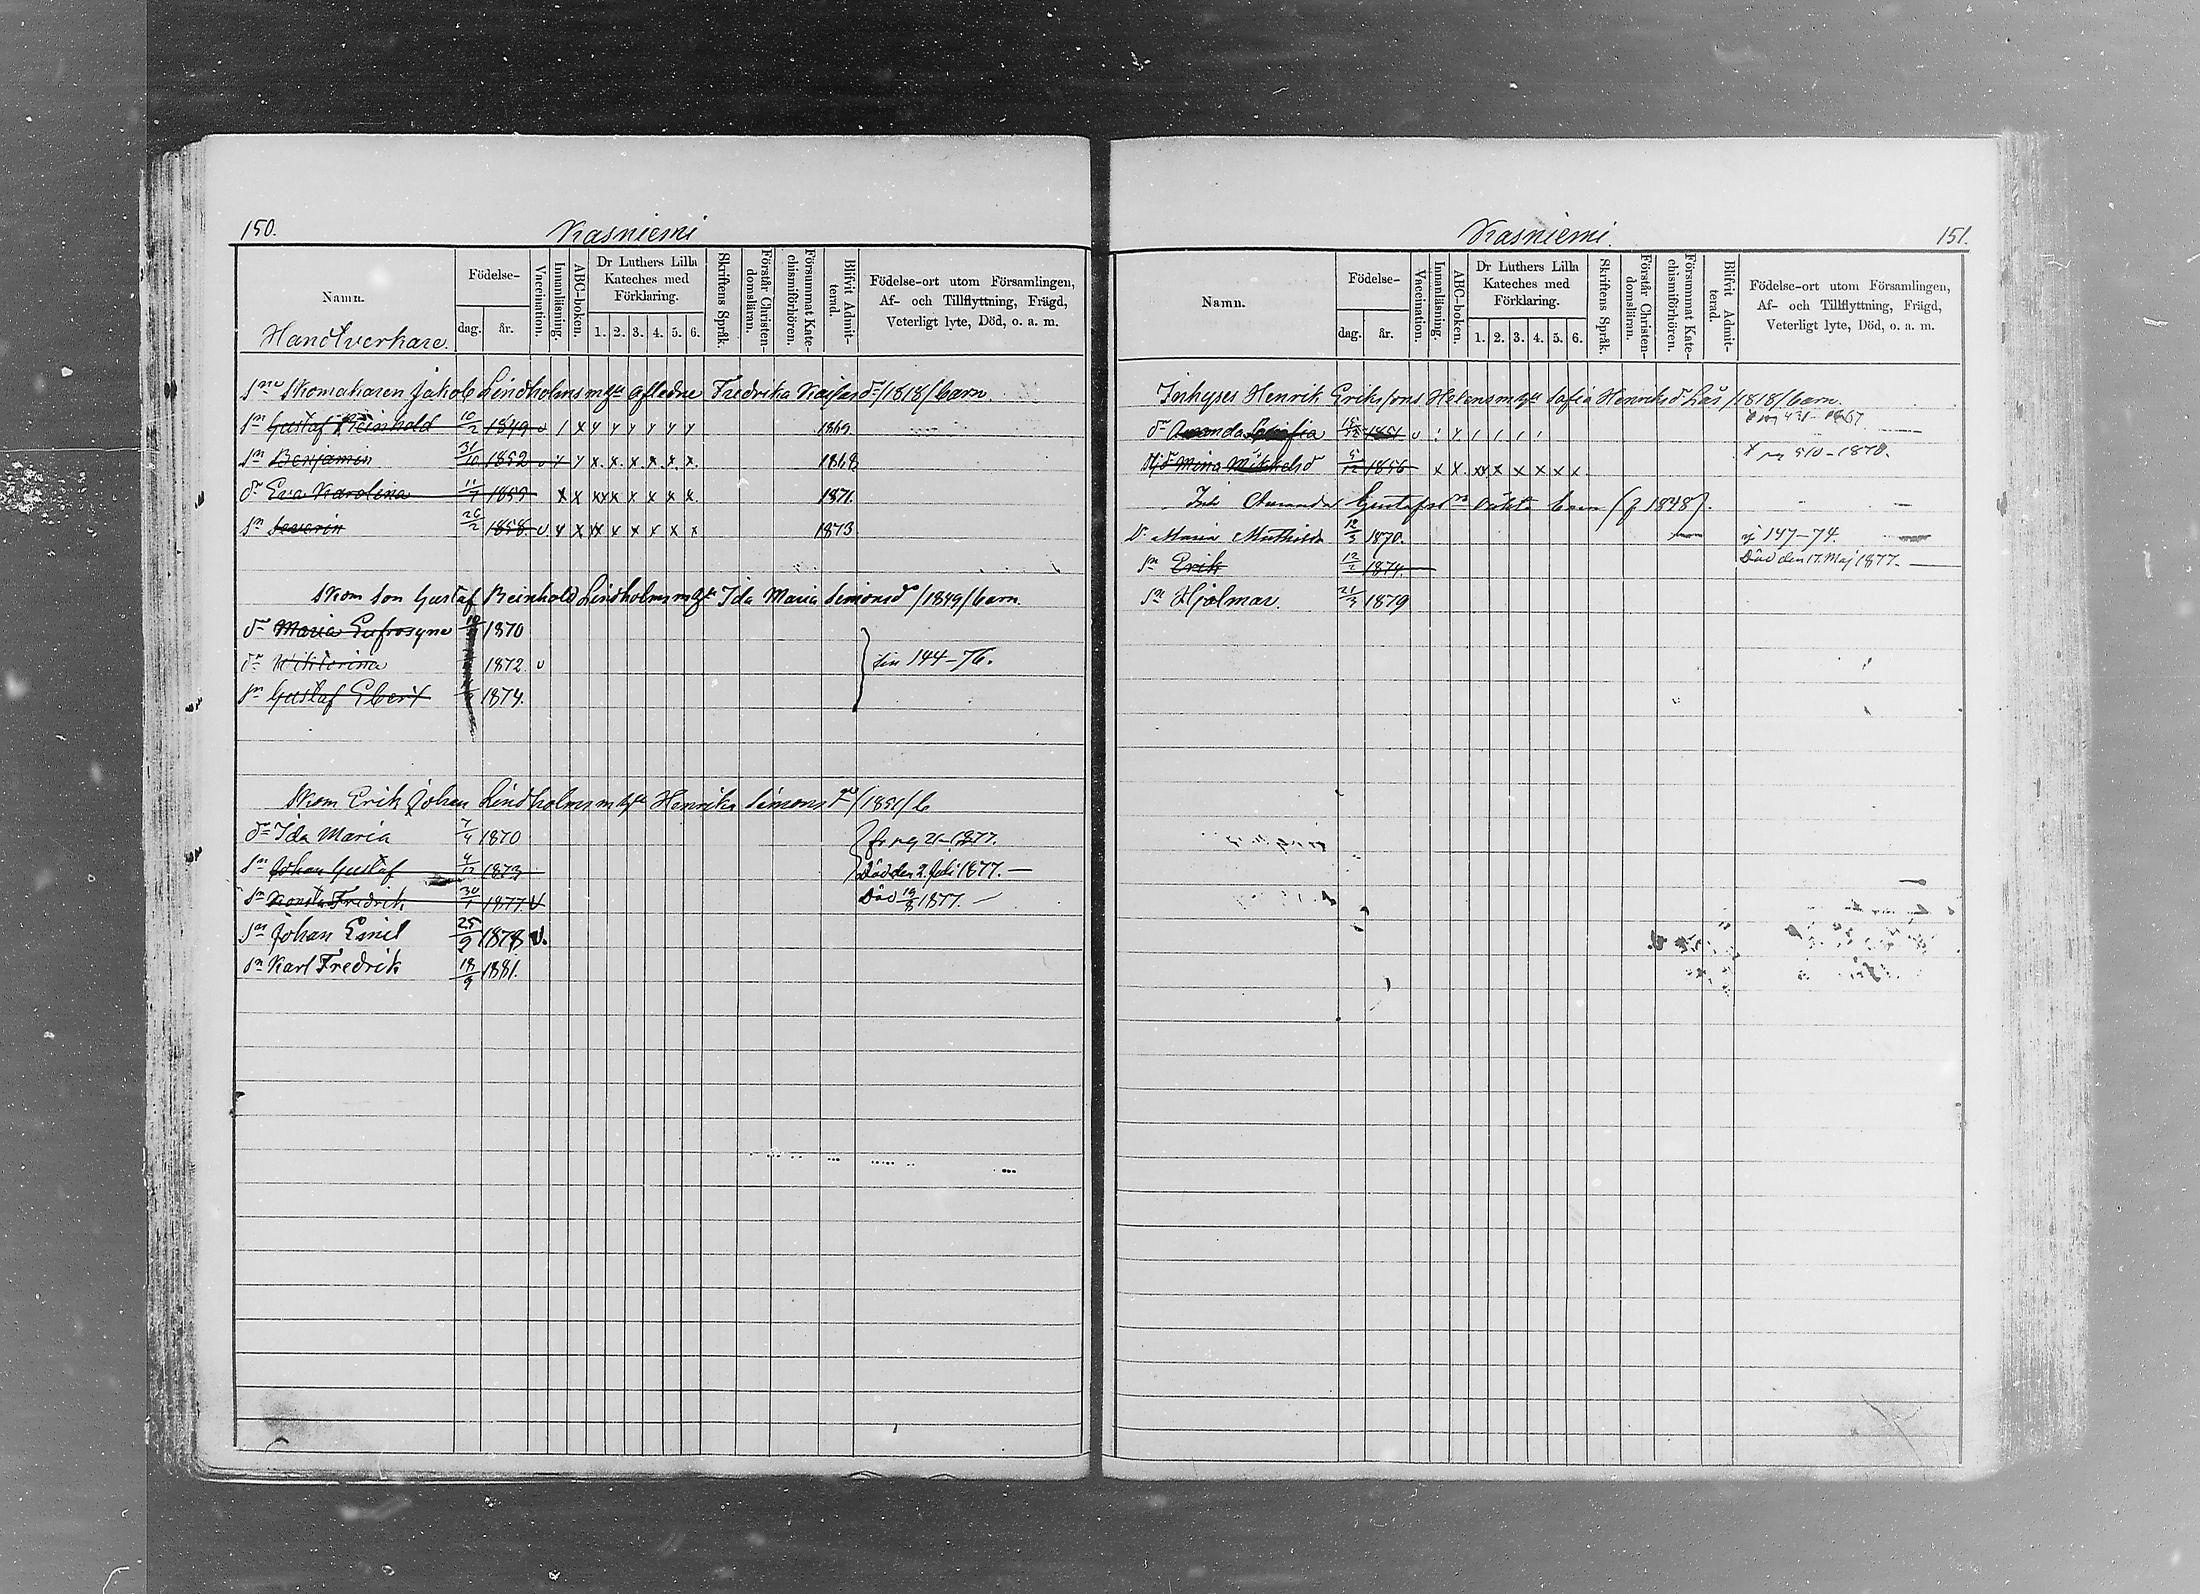 150.
Kasniemi
Namn.
Handtverkare.
Födelse-
dag.
år.
Vaccination.
Innanläsning.
ABC-boken.
Dr Luthers Lilla
Kateches med
Förklaring.
1. 2. 3. 4. 5. 6.
Skriftens Språk.
Förstår Christen-
domsläran.
Försummat Kate-
chismiförhören.
Blifvit Admit-
terad.
Födelse-ort utom Församlingen,
Af- och Tillflyttning, Frägd,
Veterligt lyte, Död, o. a. m.
Skomakaren Jakob Lindholms m hu afledne Fredrika /1818/ barn
Sn Gustaf Reinhold 10/2 1849 v / x y y y y y y 1869
Sn Benjamin 31/10 1852 v x y x x x x x x 1868
dr Eva Karolina 11/7 1859 x x x x x x x x 1871.
Sn Severin 26/2 1858. v x x x x x x x x 1873
Skom Son Gustaf Reinhold Lindholms m hu Ida Maria Simonsd /1849/ barn.
dr Maria Eufrosyne 1870
dr 1872 v
Sn Gustaf Ebert 1874.
144-76.
Skom Erik Johan Lindholms m hu Henrika Simonsd /1851/ b
dr Ida Maria 7/4 1870 fr pg 21-1877.
Sn Johan Gustaf 4/12 1873 Död den 2 Juli 1877. —
Sn Konsta Fredrik 30/1 1877. v Död 19/8 1877. —
Sn Johan Emil 25/9 1878 v.
Sn Karl Fredrik 18/9 1881.
Kasniemi.
151.
Namn.
Födelse-
dag.
år.
Vaccination.
Innanläsning.
ABC-boken.
Dr Luthers Lilla
Kateches med
Förklaring.
1. 2. 3. 4. 5. 6.
Skriftens Språk.
Förstår Christen-
domsläran.
Försummat Kate-
chismiförhören.
Blifvit Admit-
terad.
Födelse-ort utom Församlingen,
Af- och Tillflyttning, Frägd,
Veterligt lyte, Död, o. a. m.
Inhyses Henrik Erikssons Helens m hu Sofia Henriksd Lås /1818/ barn.
dr Amanda 1851 v
431-1867.
Mina Mikkelsd 5/12 1856 x x x x x x x x pg 510-1870.
Inh Amanda Gustafsd oäkta barn (f 1848).
D. Maria Mathilda 12/3 1870. 147-74.
Sn Erik 12/2 1874. Död den 17 Maj 1877. —
Sn Hjalmar. 21/3 1879